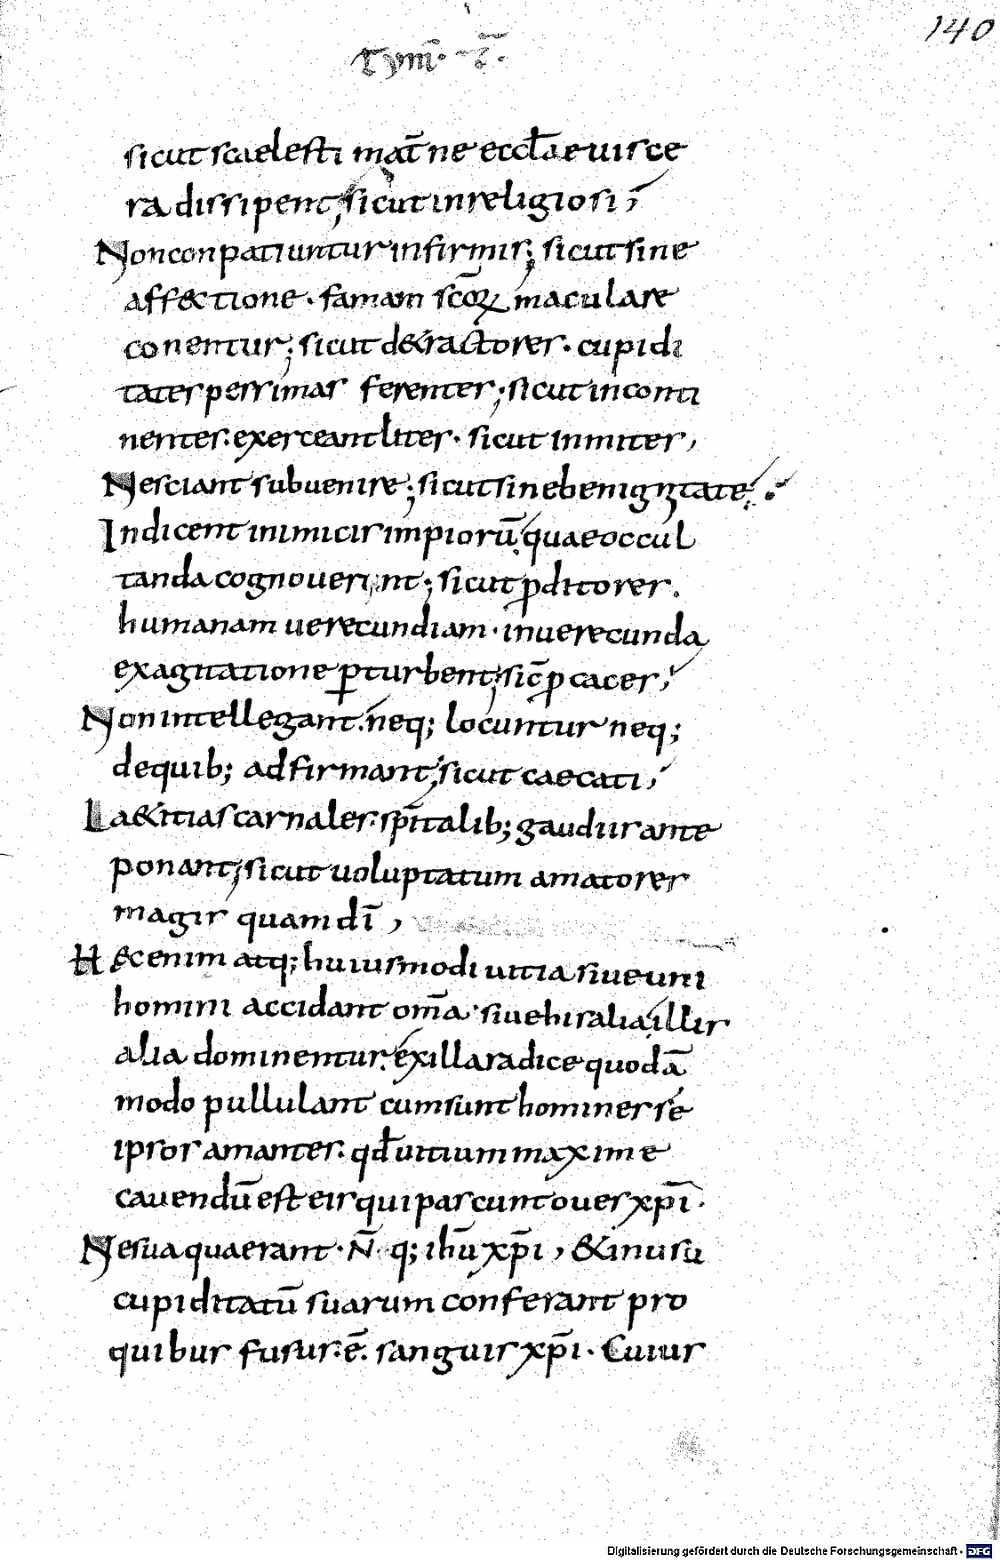 140
Tym̄. ī.
sicut scaelesti mat̄ ne eccła e uisce
ra dissipent; sicut inreligiosi;
Non conpatiuntur infirmis; sicut sine
affectione. famam scōꝝ maculare
conentur; sicut detractores. cupidi
tates pessimas ferentes; sicut inconti
nentes. exerceant lites. sicut inmites,
Nesciant subuenire; sicut sine benignitate;.
Indicent inimicis impiorū quae occul
tanda cognouerint; sicut p̱ditores.
humanam uerecundiam. inuerecunda
exagitatione ꝑturbent; sic̄ ꝓcaces;
Non intellegant. neq; locuntur neq;
de quib; adfirmant; sicut caecati;
Laetitias carnales. spītalib; gaudiis ante
ponant; sicut uoluptatum amatores
magis quam dī,
Haec enim atq; huiusmodi uitia siue uni
homini accidant om̄a. siue his alia illis
alia dominentur. ex illa radice quodā
modo pullulant cum sunt homines se
ipsos amantes. qđ uitium maxime
cauendū est eis qui pascunt oues xp̄i.
Ne sua quaerant. N̄. q; ihū xp̄i, & in usū
cupiditatū suarum conferant pro
quibus fusus. ē. sanguis xp̄i. Cuius
Digitalisierung gefördert durch die Deutsche Forschungsgemeinschaft - DFG